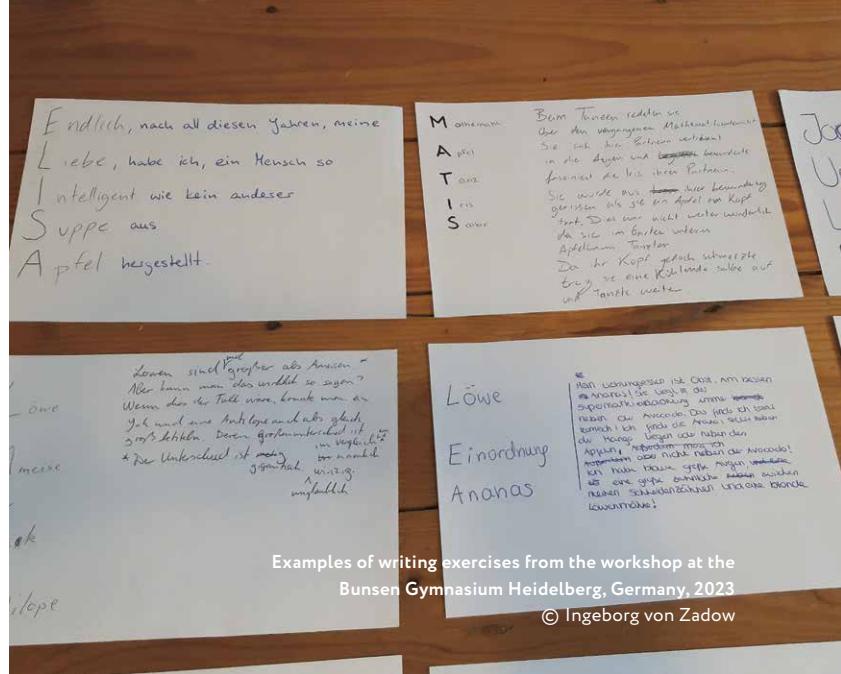 Endlich, nach all diesen Jahren, meine
Liebe, habe ich, ein Mensch so
Intelligent wie kein anderer
Suppe aus
Apfel hergestellt.
Mathematik
Apfel
Tanz
Iris
Salbe
Beim Tanzen redeten sie
über den vergangenen Mathematikunterricht
Sie sah ihrer Partnerin verträumt
in die Augen und bewunderte
fasziniert die Iris ihrer Partnerin.
Sie wurde aus ihrer Bewunderung
gerissen als sie ein Apfel am Kopf
traf. Dies war nicht weiter wunderlich
da sie im Garten unterm
Apfelbaum Tanzten
Da ihr Kopf jedoch schmerzte
trug sie eine Kühlende Salbe auf
und Tanzte weiter
Ja
U
L
Löwe
Ameise
ak
ilope
Löwen sind größer als Ameisen
Aber kann man das wirklich so sagen?
Wenn dies der Fall wäre, könnte man an
Yak und eine Antilope auch als gleich
groß betiteln. Deren Größenunterschied ist
im Vergleich
* Der Unterschied ist nämlich
gigantisch winzig.
unglaublich
Löwe
Einordnung
Ananas
Mein Lieblingsessen ist Obst. Am besten
Ananas! Sie liegt in der
Supermarkt immer
neben der Avocado. Das finde ich total
komisch! Ich finde die Ananas sollte neben
der Mango liegen oder neben den
Äpfeln,
aber nicht neben der Avocado!
Ich habe blaue große Augen
eine große Zahnlücke zwischen
meinen Schneidezähnen und eine blonde
Löwenmähne!
Examples of writing exercises from the workshop at the
Bunsen Gymnasium Heidelberg, Germany, 2023
© Ingeborg von Zadow